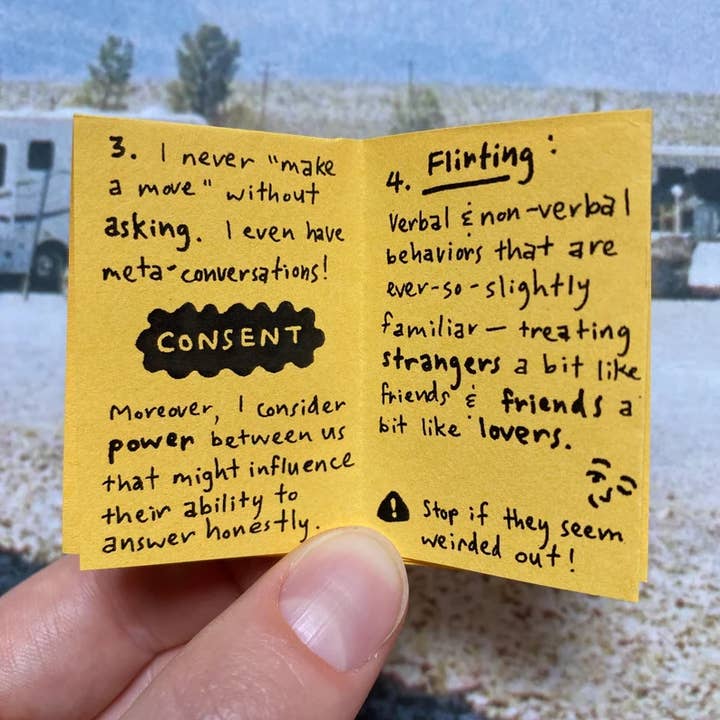 3. I never "make
a move" without
asking. I even have
meta-conversations!
CONSENT
Moreover, I consider
power between us
that might influence
their ability to
answer honestly.
4. Flirting:
Verbal & non-verbal
behaviors that are
ever-so-slightly
familiar — treating
strangers a bit like
friends & friends a
bit like lovers.
! Stop if they seem
weirded out!